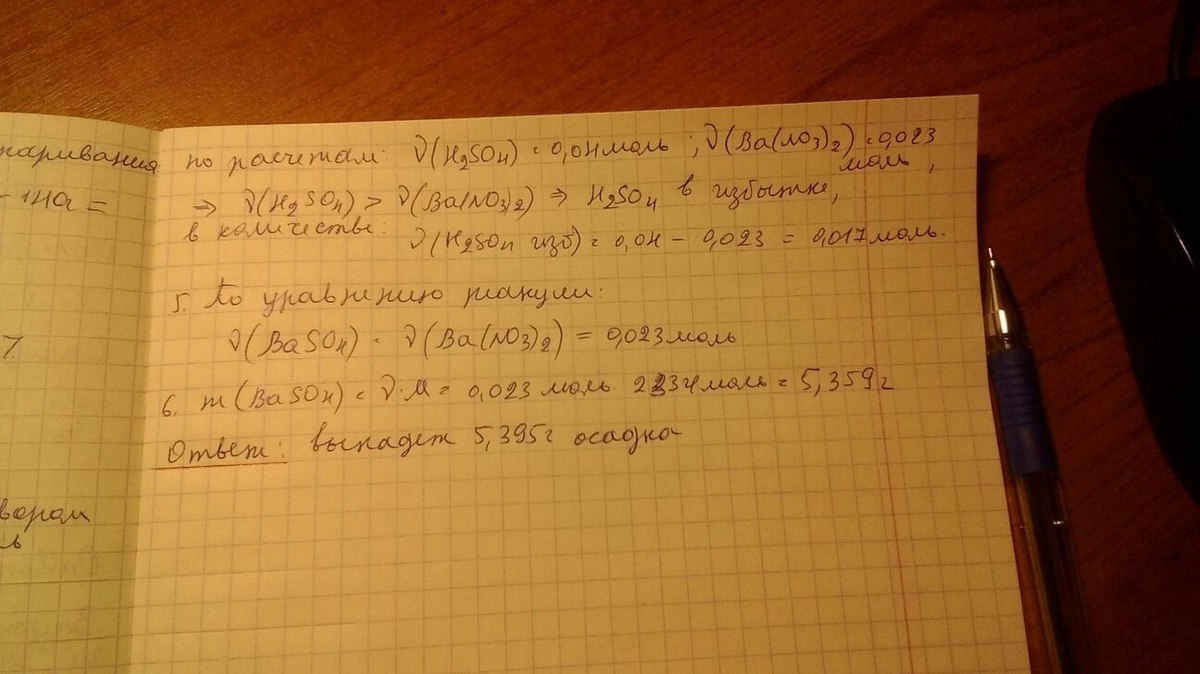 паривания
по расчетам: ν(H2SO4) = 0,04 моль ; ν(Ba(NO3)2) = 0,023
моль ,
=> ν(H2SO4) > ν(Ba(NO3)2) => H2SO4 в избытке,
в количестве:
ν(H2SO4 изб) = 0,04 - 0,023 = 0,017 моль.
5. По уравнению реакции:
ν(BaSO4) = ν(Ba(NO3)2) = 0,023 моль
6. m(BaSO4) = ν·M = 0,023 моль 233 г/моль = 5,359 г
Ответ: выпадет 5,395 г осадка
вором
ль